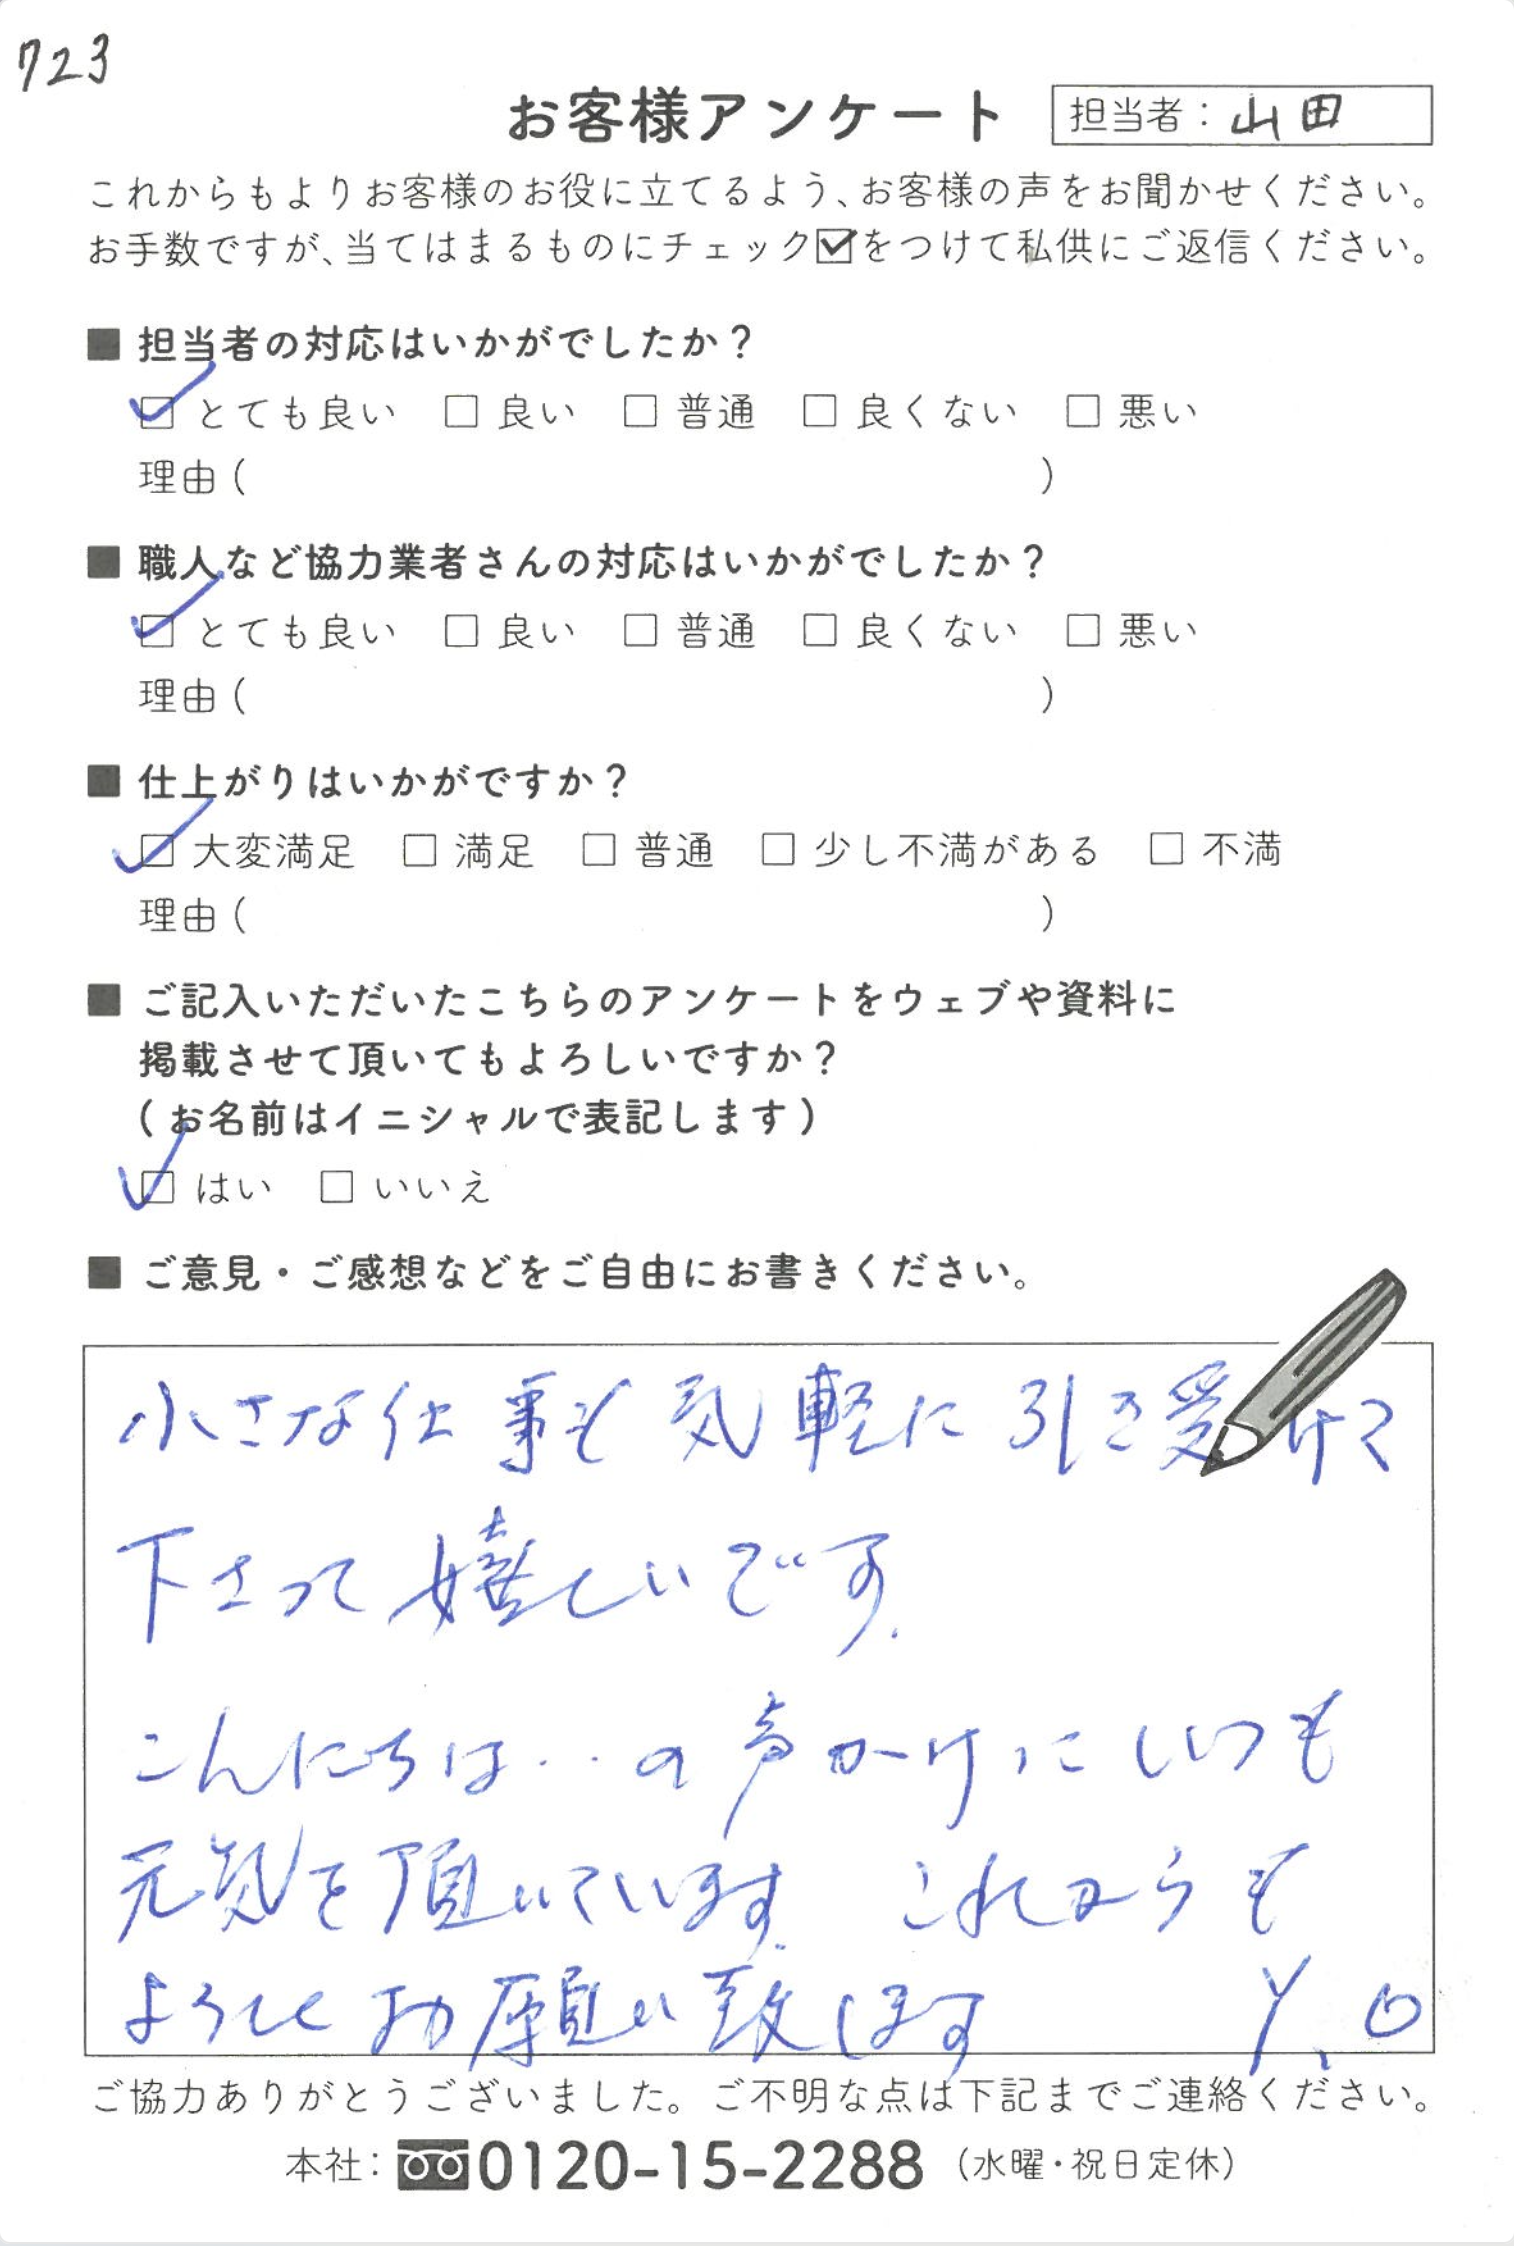 723
お客様アンケート 担当者：山田
これからもよりお客様のお役に立てるよう、お客様の声をお聞かせください。
お手数ですが、当てはまるものにチェック☑をつけて私供にご返信ください。
■ 担当者の対応はいかがでしたか？
☑ とても良い □ 良い □ 普通 □ 良くない □ 悪い
理由（ ）
■ 職人など協力業者さんの対応はいかがでしたか？
☑ とても良い □ 良い □ 普通 □ 良くない □ 悪い
理由（ ）
■ 仕上がりはいかがですか？
☑ 大変満足 □ 満足 □ 普通 □ 少し不満がある □ 不満
理由（ ）
■ ご記入いただいたこちらのアンケートをウェブや資料に
掲載させて頂いてもよろしいですか？
（お名前はイニシャルで表記します）
☑ はい □ いいえ
■ ご意見・ご感想などをご自由にお書きください。
小さな仕事も気軽に引き受けて
下さって嬉しいです.
こんにちは・・の声かけにいつも
元気を頂いています. これからも
よろしくお願い致します Y.O
ご協力ありがとうございました。ご不明な点は下記までご連絡ください。
本社：0120-15-2288（水曜・祝日定休）